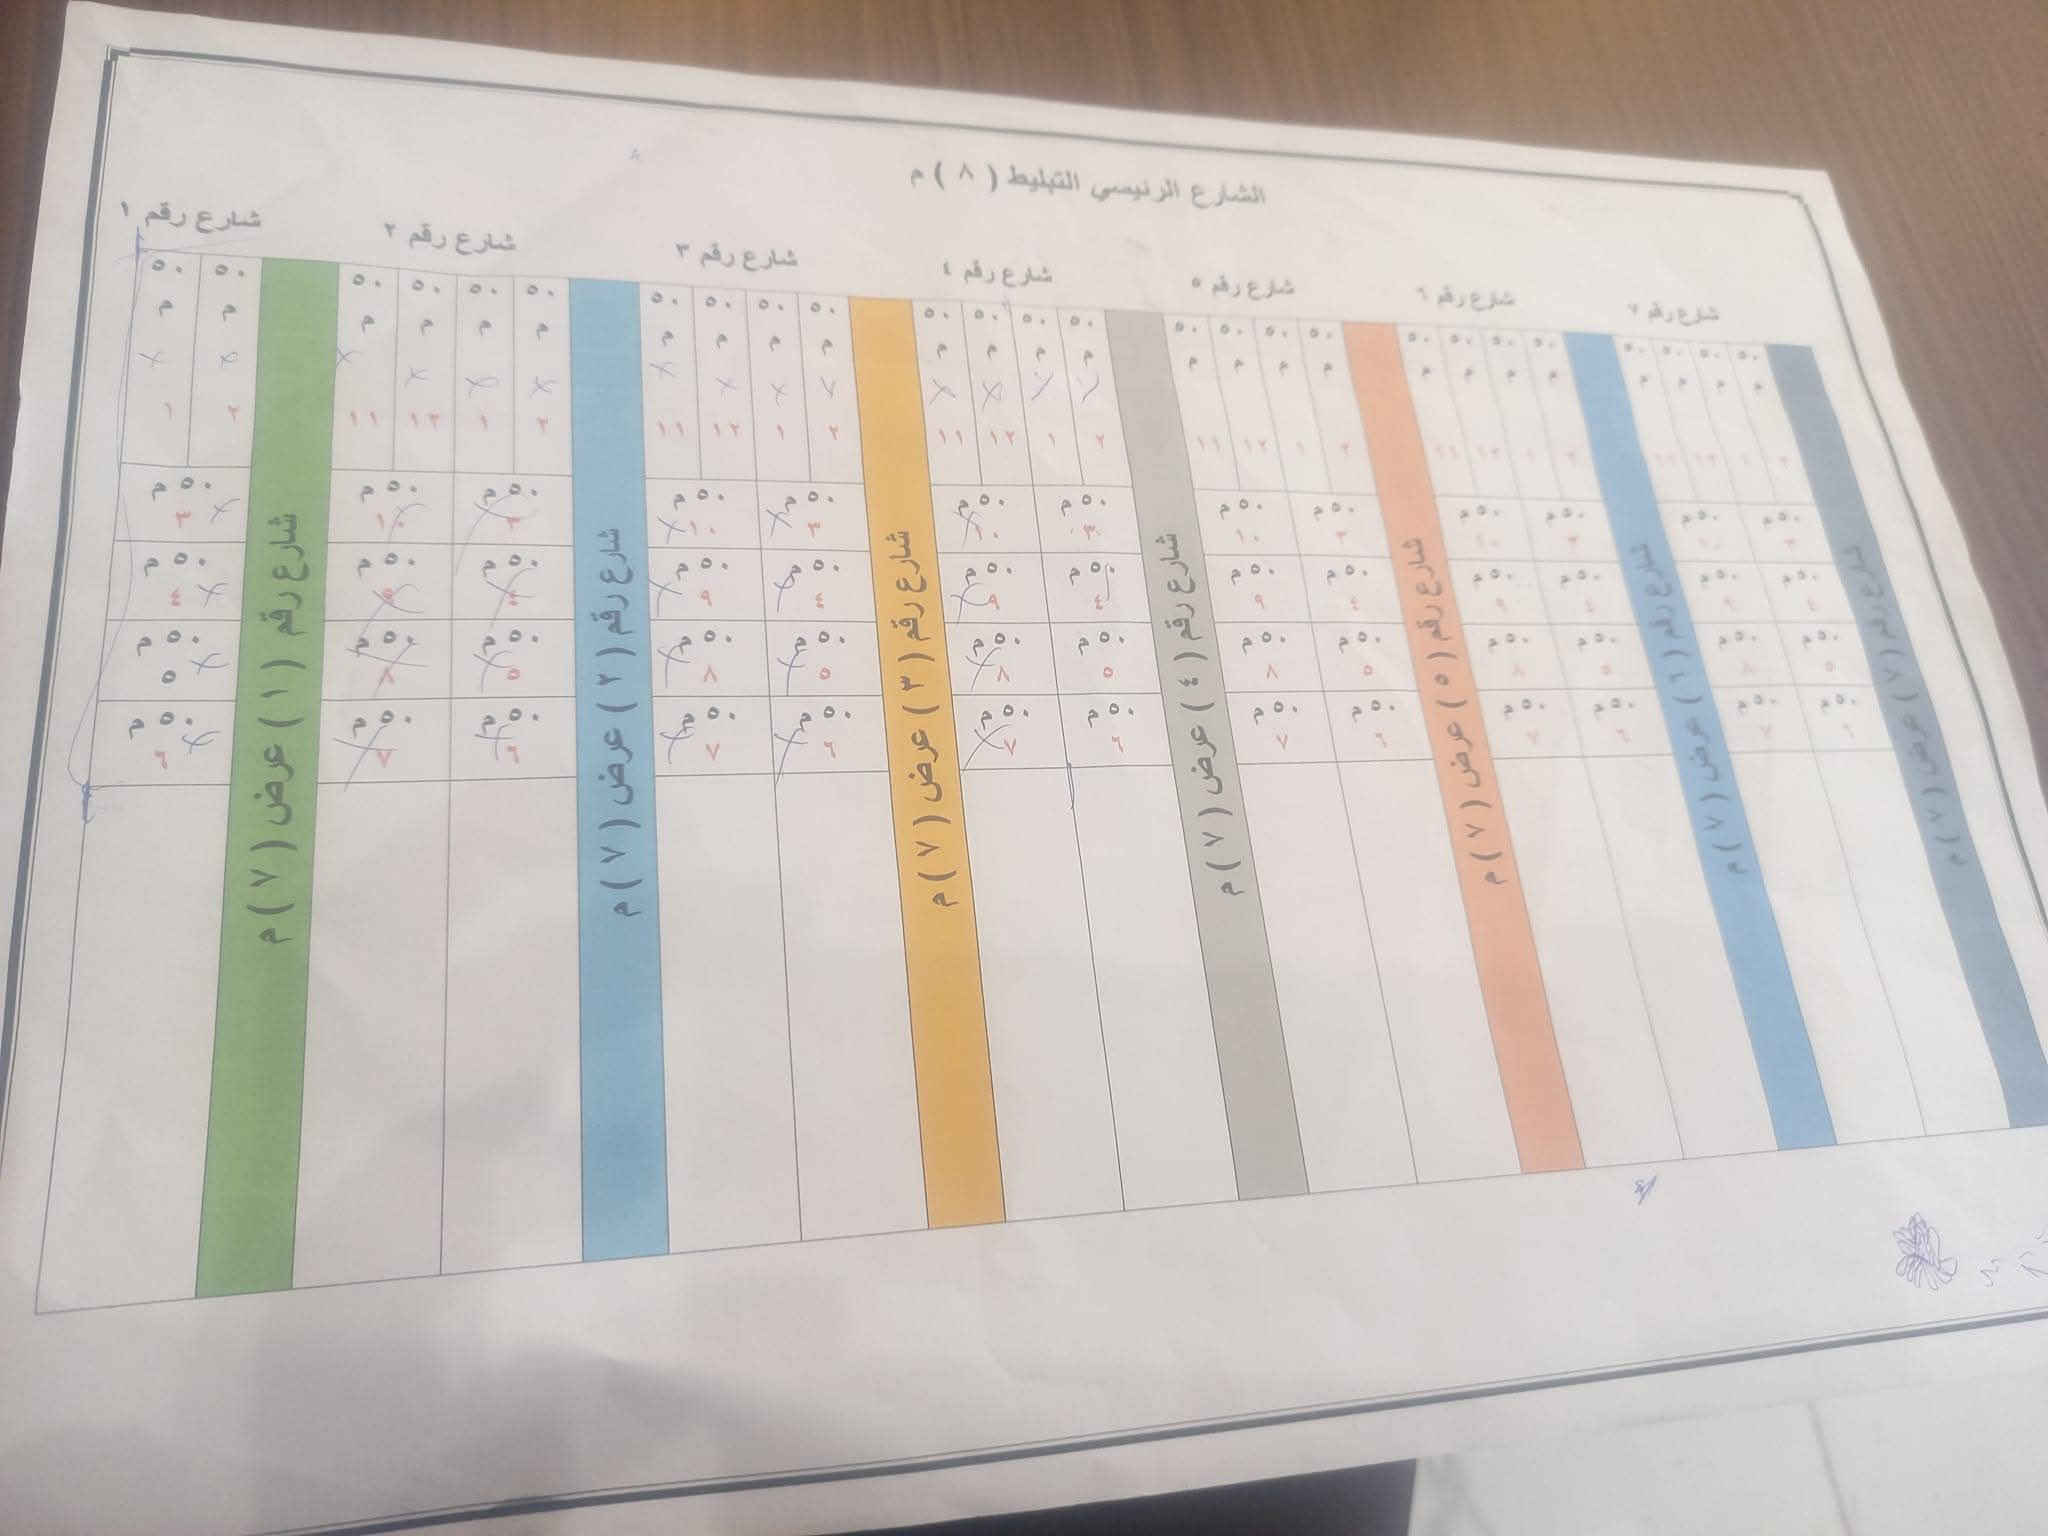 الشارع الرئيسي التبليط ( ٨ ) م
شارع رقم ١
شارع رقم ٢
شارع رقم ٣
شارع رقم ٤
شارع رقم ٥
شارع رقم ٦
شارع رقم ٧
٥٠ م ١
٥٠ م ٢
٥٠ م ١١
٥٠ م ١٢
٥٠ م ١
٥٠ م ٢
٥٠ م ١١
٥٠ م ١٢
٥٠ م ١
٥٠ م ٢
٥٠ م ١١
٥٠ م ١٢
٥٠ م ١
٥٠ م ٢
٥٠ م ١١
٥٠ م ١٢
٥٠ م ١
٥٠ م ٢
٥٠ م ١١
٥٠ م ١٢
٥٠ م ١
٥٠ م ٢
٥٠ م ١١
٥٠ م ١٢
٥٠ م ١
٥٠ م ٢
٥٠ م ٣
٥٠ م ١٠
٥٠ م ٣
٥٠ م ١٠
٥٠ م ٣
٥٠ م ١٠
٥٠ م ٣
٥٠ م ١٠
٥٠ م ٣
٥٠ م ١٠
٥٠ م ٣
٥٠ م ١٠
٥٠ م ٣
٥٠ م ٤
٥٠ م ٩
٥٠ م ٤
٥٠ م ٩
٥٠ م ٤
٥٠ م ٩
٥٠ م ٤
٥٠ م ٩
٥٠ م ٤
٥٠ م ٩
٥٠ م ٤
٥٠ م ٩
٥٠ م ٤
٥٠ م ٥
٥٠ م ٨
٥٠ م ٥
٥٠ م ٨
٥٠ م ٥
٥٠ م ٨
٥٠ م ٥
٥٠ م ٨
٥٠ م ٥
٥٠ م ٨
٥٠ م ٥
٥٠ م ٨
٥٠ م ٥
٥٠ م ٦
٥٠ م ٧
٥٠ م ٦
٥٠ م ٧
٥٠ م ٦
٥٠ م ٧
٥٠ م ٦
٥٠ م ٧
٥٠ م ٦
٥٠ م ٧
٥٠ م ٦
٥٠ م ٧
٥٠ م ٦
شارع رقم ( ١ ) عرض ( ٧ ) م
شارع رقم ( ٢ ) عرض ( ٧ ) م
شارع رقم ( ٣ ) عرض ( ٧ ) م
شارع رقم ( ٤ ) عرض ( ٧ ) م
شارع رقم ( ٥ ) عرض ( ٧ ) م
شارع رقم ( ٦ ) عرض ( ٧ ) م
شارع رقم ( ٧ ) عرض ( ٧ ) م